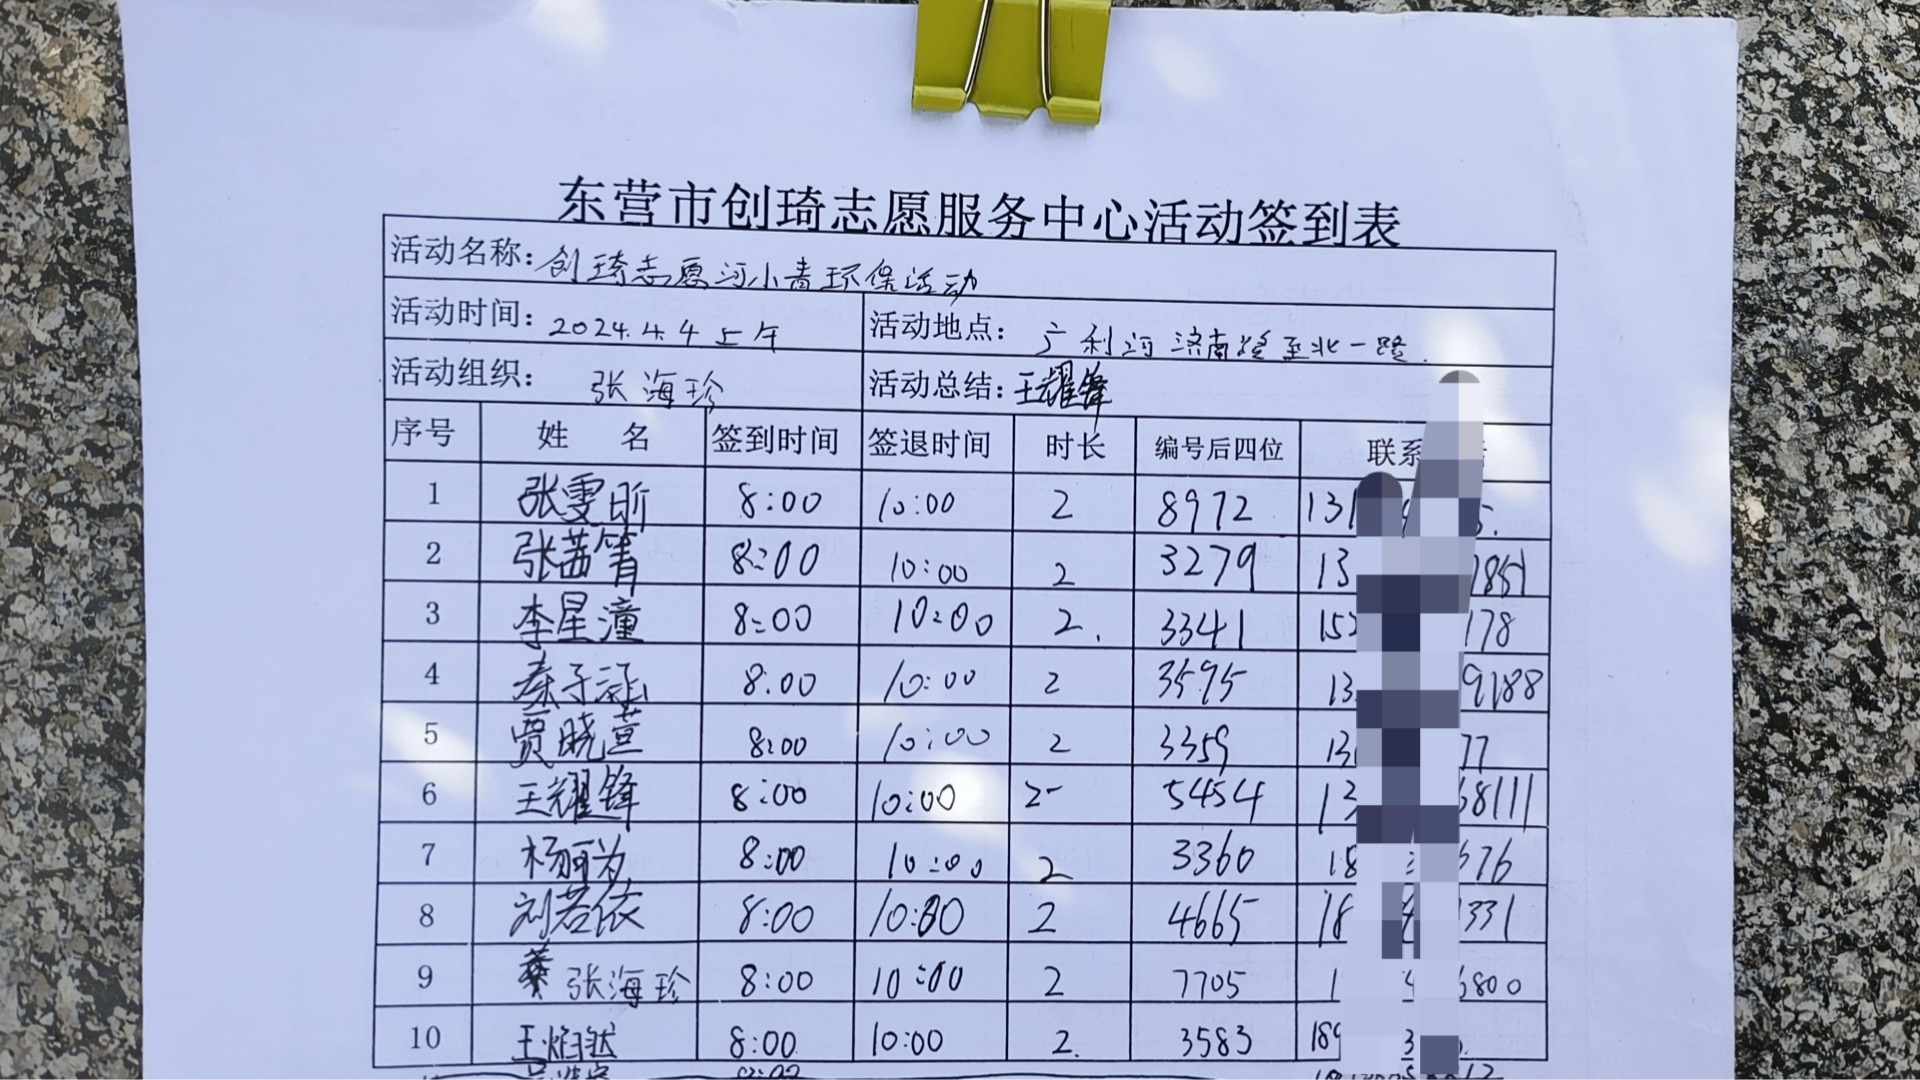 东营市创琦志愿服务中心活动签到表
活动名称：创琦志愿河小青环保活动
活动时间：2024.4.4上午 活动地点：广利河济南路至北一路.
活动组织：张海珍 活动总结：王耀锋
序号 姓 名 签到时间 签退时间 时长 编号后四位 联系
1 张雯昕 8:00 10:00 2 8972 131
2 张茜箐 8:00 10:00 2 3279 13 1851
3 李星潼 8:00 10:00 2. 3341 152 178
4 秦子涵 8.00 10:00 2 3595 13 9188
5 贾晓萱 8:00 10:00 2 3359 13 77
6 王耀锋 8:00 10:00 2 5454 13 68111
7 杨丽为 8:00 10:00 2 3360 18 676
8 刘若依 8:00 10:00 2 4665 18 331
9 张海珍 8:00 10:00 2 7705 1 6800
10 王焰铭 8:00 10:00 2. 3583 189 3